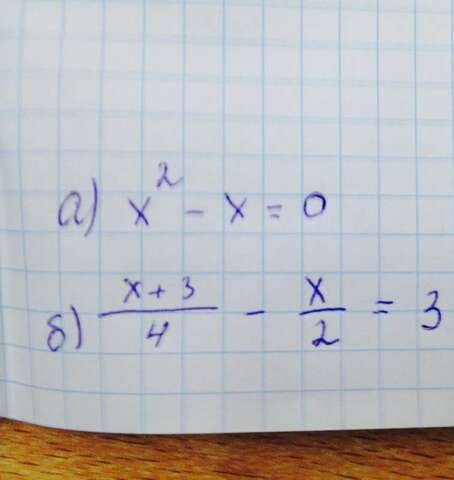 а) x² - x = 0
б) (x + 3)/4 - x/2 = 3